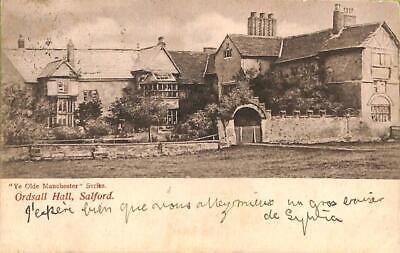 "Ye Olde Manchester" Series.
Ordsall Hall, Salford.
J'espère bien que vous allez mieux un gros baiser
de Sylvia